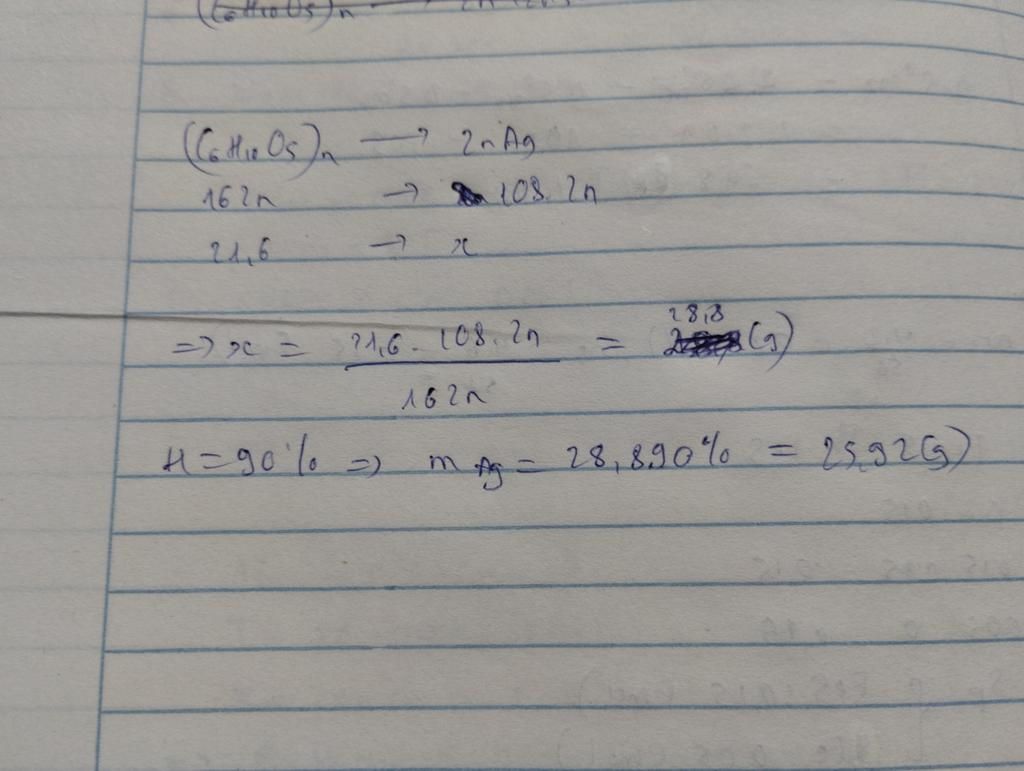 (C6H10O5)n
(C6H10O5)n → 2nAg
162n → 108.2n
21,6 → x
=> x = 21,6.108.2n / 162n = 28,8 (g)
H=90% => mAg = 28,8.90% = 25,92(g)